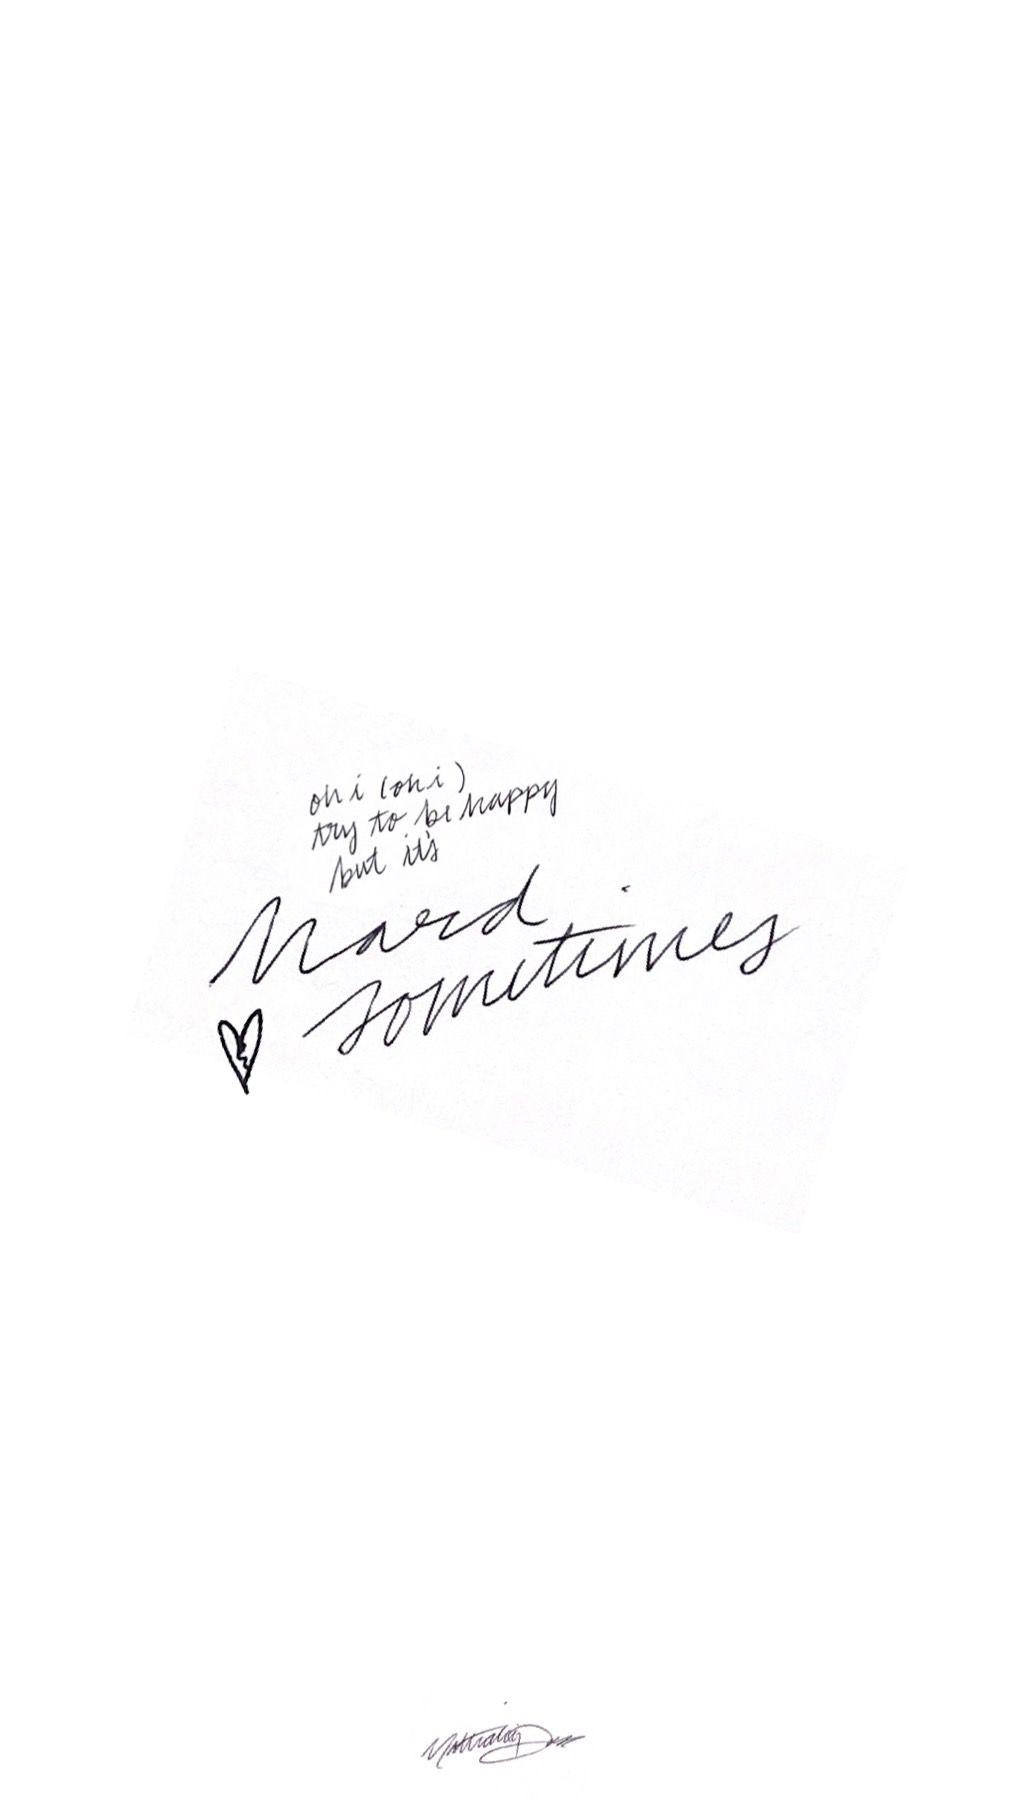 oh i (oh i)
try to be happy
but it's
hard
sometimes